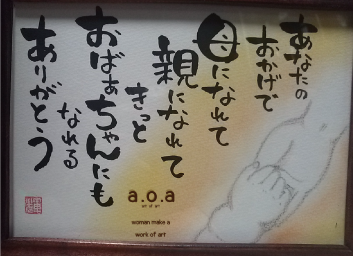 あなたの
おかげで
母になれて
親になれて
きっと
おばあちゃんにも
なれる
ありがとう
a.o.a
art of art
woman make a
work of art